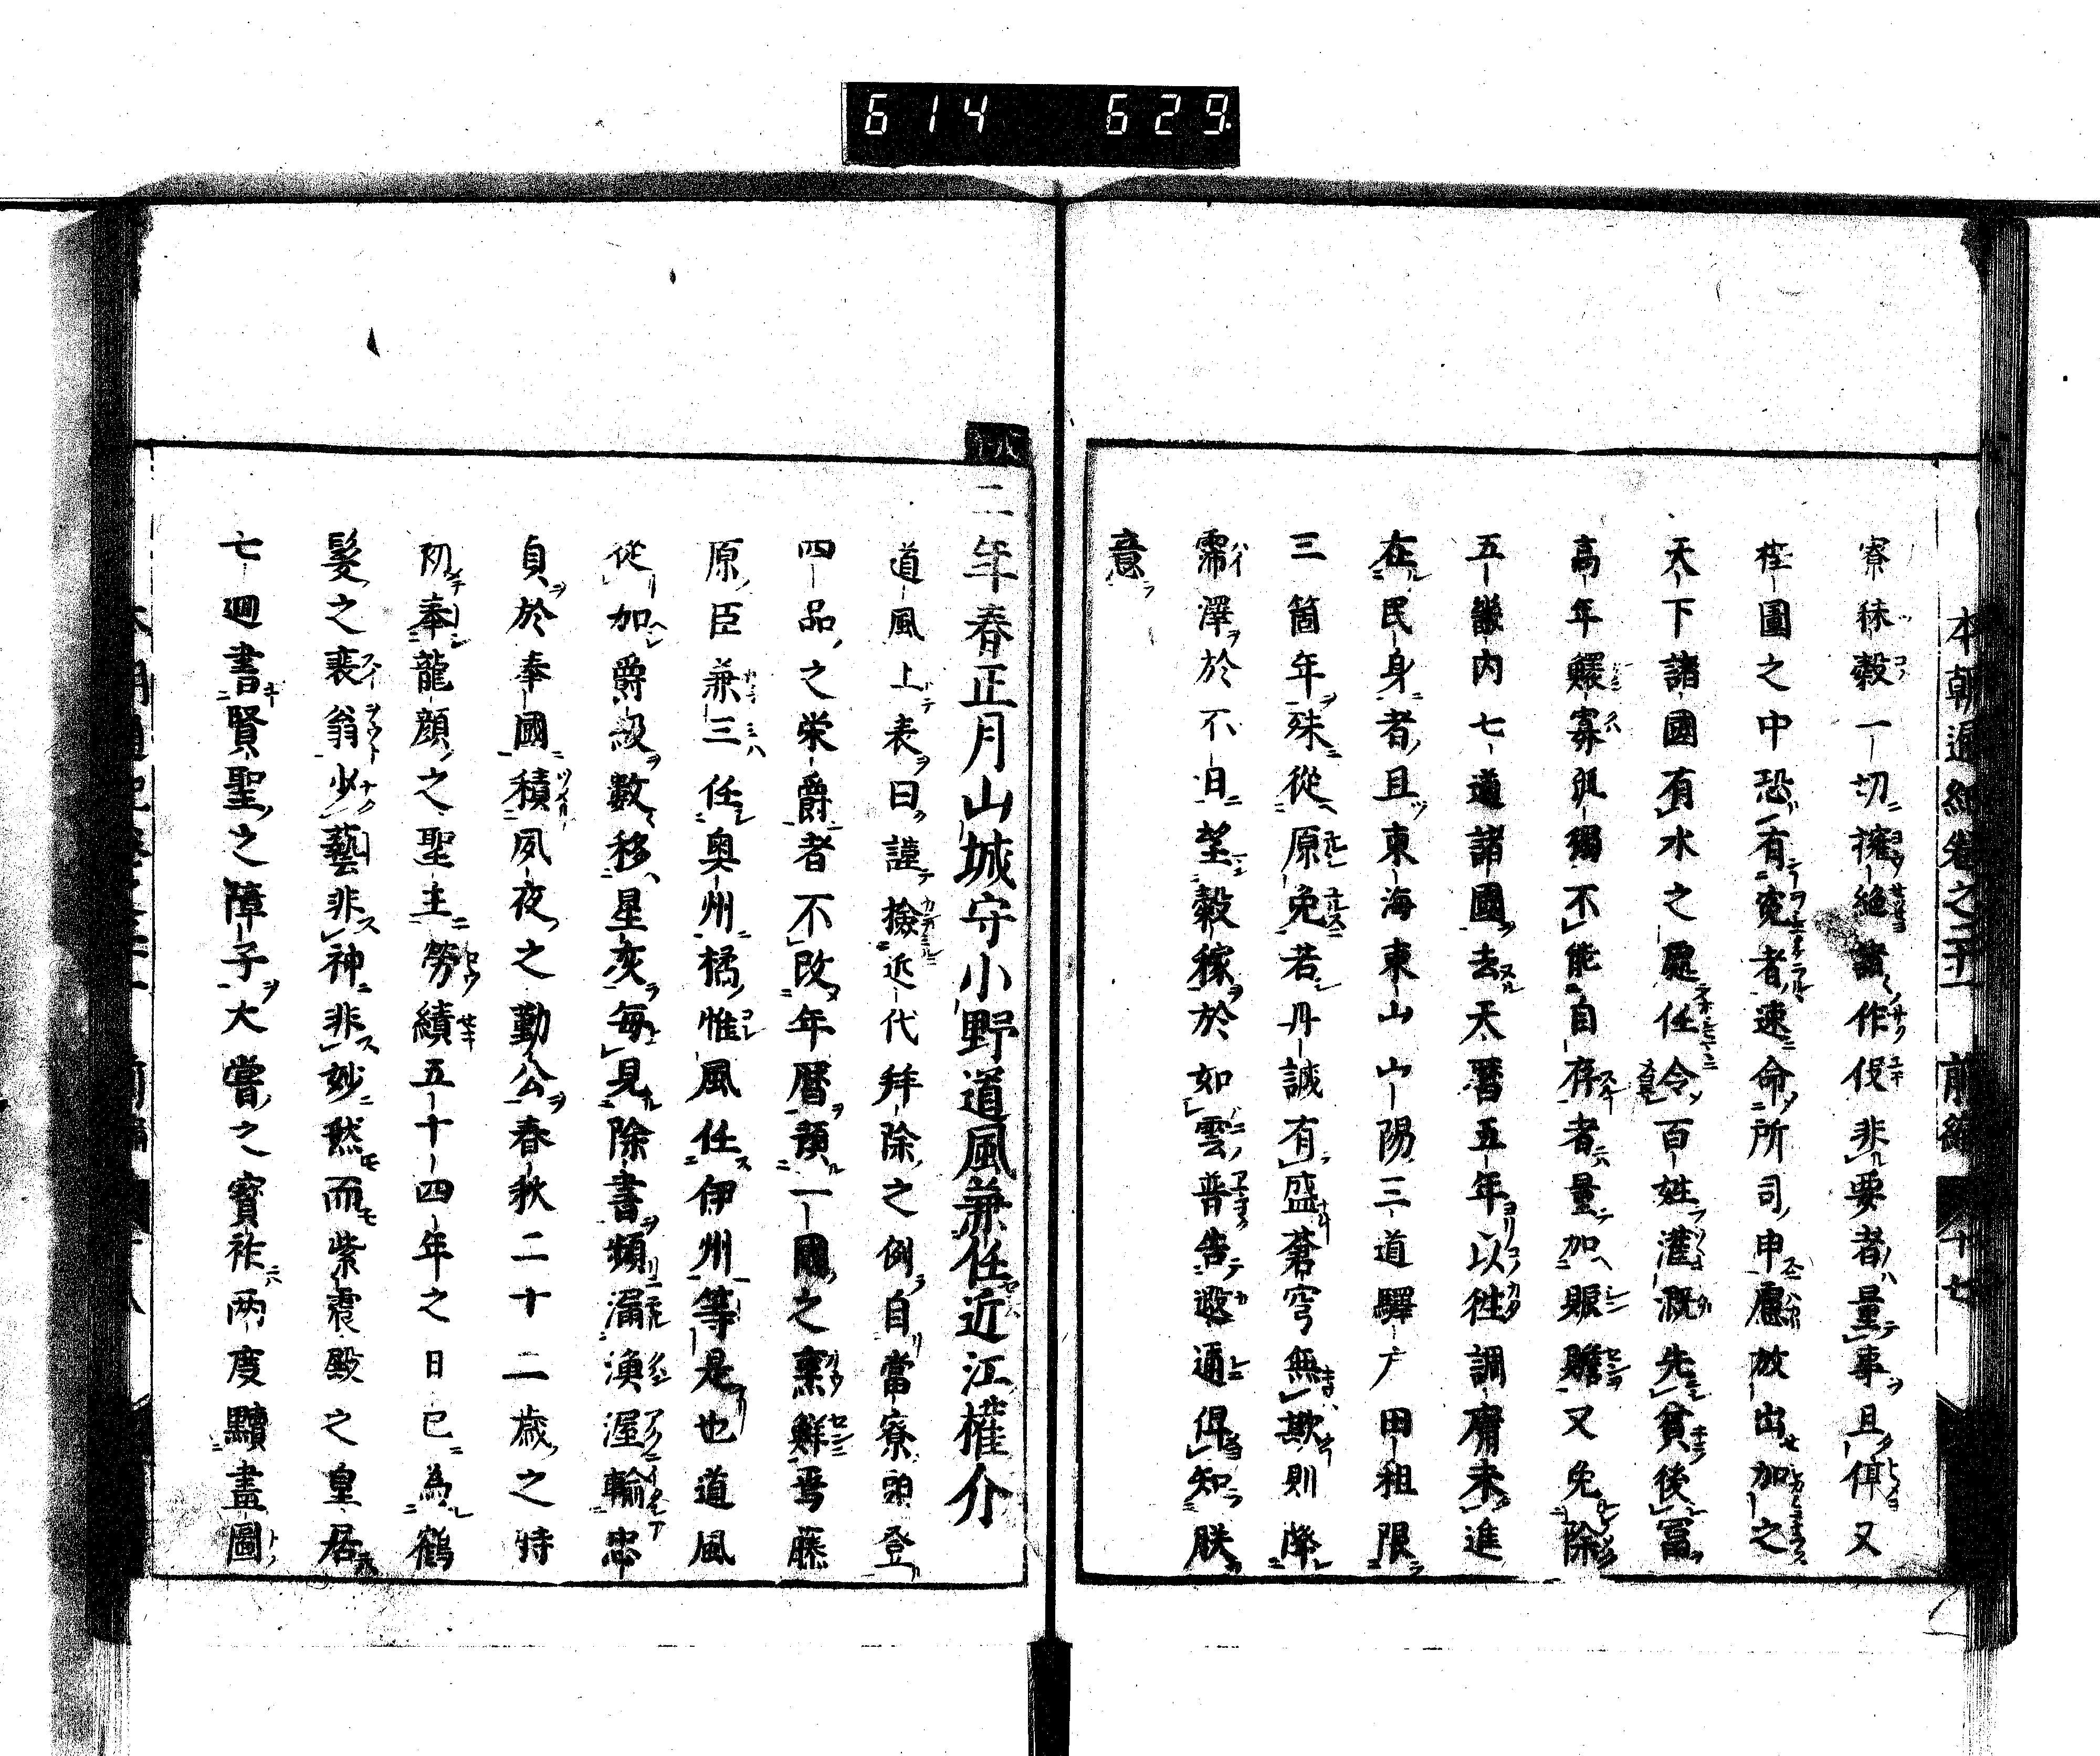 614 629
本朝通紀卷之廿一 前編 十七
寮秣穀一切擁絶諸作役非要者量事且俾又
在圄之中恐有寃者速命所司申慮放出加之
天下諸國有水之處任令百姓灌漑先貧後冨
高年鰥寡孤獨不能自存者量加賑贍又免除
五畿内七道諸國去天暦五年以徃調庸未進
在民身者且東海東山山陽三道驛戸田租限
三箇年殊從原免若丹誠有盛蒼穹無欺則降
霈澤於不日望穀稼於如雲普告遐邇俾知朕
意
二年春正月山城守小野道風兼任近江權介
道風上表曰謹撿近代拜除之例自當寮頭登
四品之栄爵者不改年暦領一國之稟鮮焉藤
原臣兼三任奥州橘惟風任伊州等是也道風
從加爵級數移星灰毎見除書頻漏渙渥輸忠
貞於奉國積夙夜之勤公春秋二十二歳之時
初奉龍顔之聖主勞績五十四年之日已為鶴
髮之裵翁少藝非神非妙然而紫震殿之皇居
七廻書賢聖之障子大嘗之寳祚兩度黷畫圖